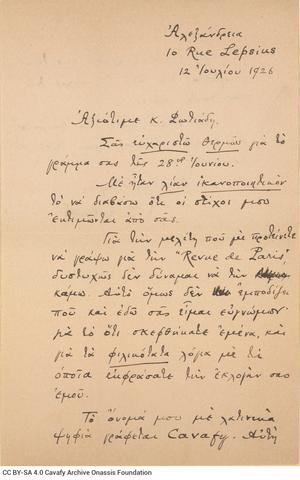 Ἀλεξάνδρεια
10 Rue Lepsius
12 Ἰουλίου 1926
Ἀξιότιμε κ. Φωτιάδη,
Σᾶς εὐχαριστῶ θερμῶς γιὰ τὸ
γράμμα σας τῆς 28ης Ἰουνίου.
Μὲ ἦταν λίαν ἱκανοποιητικὸν
τὸ νὰ διαβάσω ὅτι οἱ στίχοι μου
ἐκτιμῶνται ἀπὸ σᾶς.
Γιὰ τὴν μελέτη ποὺ μὲ προτείνετε
νὰ γράψω γιὰ τὴν "Revue de Paris",
δυστυχῶς δὲν δύναμαι νὰ τὴν
κάμω. Αὐτὸ ὅμως δὲν ἐμποδίζει
ποὺ καὶ ἐδῶ σᾶς εἶμαι εὐγνώμων
γιὰ τὸ ὅτι σκεφθήκατε ἐμένα, καὶ
γιὰ τὰ φιλικότατα λόγια μὲ τὰ
ὁποῖα ἐκφράσατε τὴν ἐκλογήν σας
ἐμοῦ.
Τὸ ὄνομά μου μὲ λατινικὰ
ψηφία γράφεται Cavafy. Αὐτὴ
CC BY-SA 4.0 Cavafy Archive Onassis Foundation